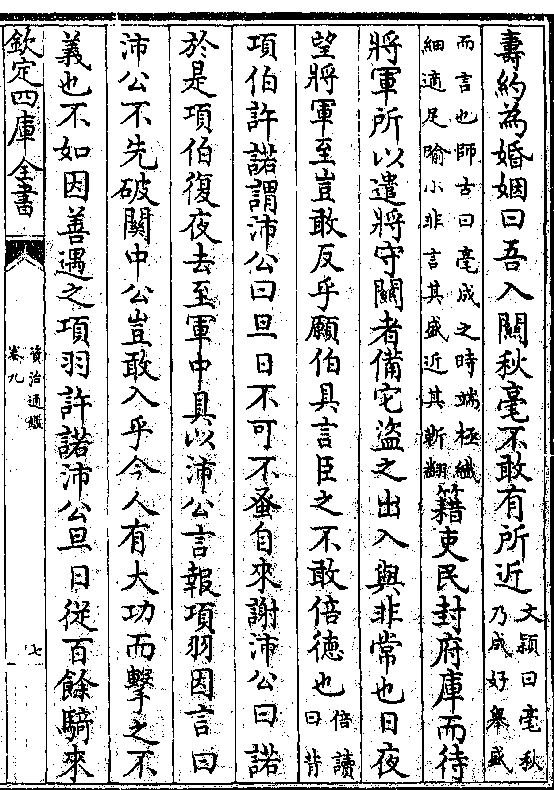 壽約為婚姻曰吾入關秋毫不敢有所近文潁曰毫秋乃成好舉盛
而言也師古曰毫成之時端極纖細適足喻小非言其盛近其靳翻籍吏民封府庫而待
將軍所以遣將守關者備它盜之出入與非常也日夜
望將軍至豈敢反乎願伯具言臣之不敢倍德也倍讀曰背
項伯許諾謂沛公曰旦日不可不蚤自來謝沛公曰諾
於是項伯復夜去至軍中具以沛公言報項羽因言曰
沛公不先破關中公豈敢入乎今人有大功而擊之不
義也不如因善遇之項羽許諾沛公旦日從百餘騎來
欽定四庫全書
資治通鑑
卷九
七